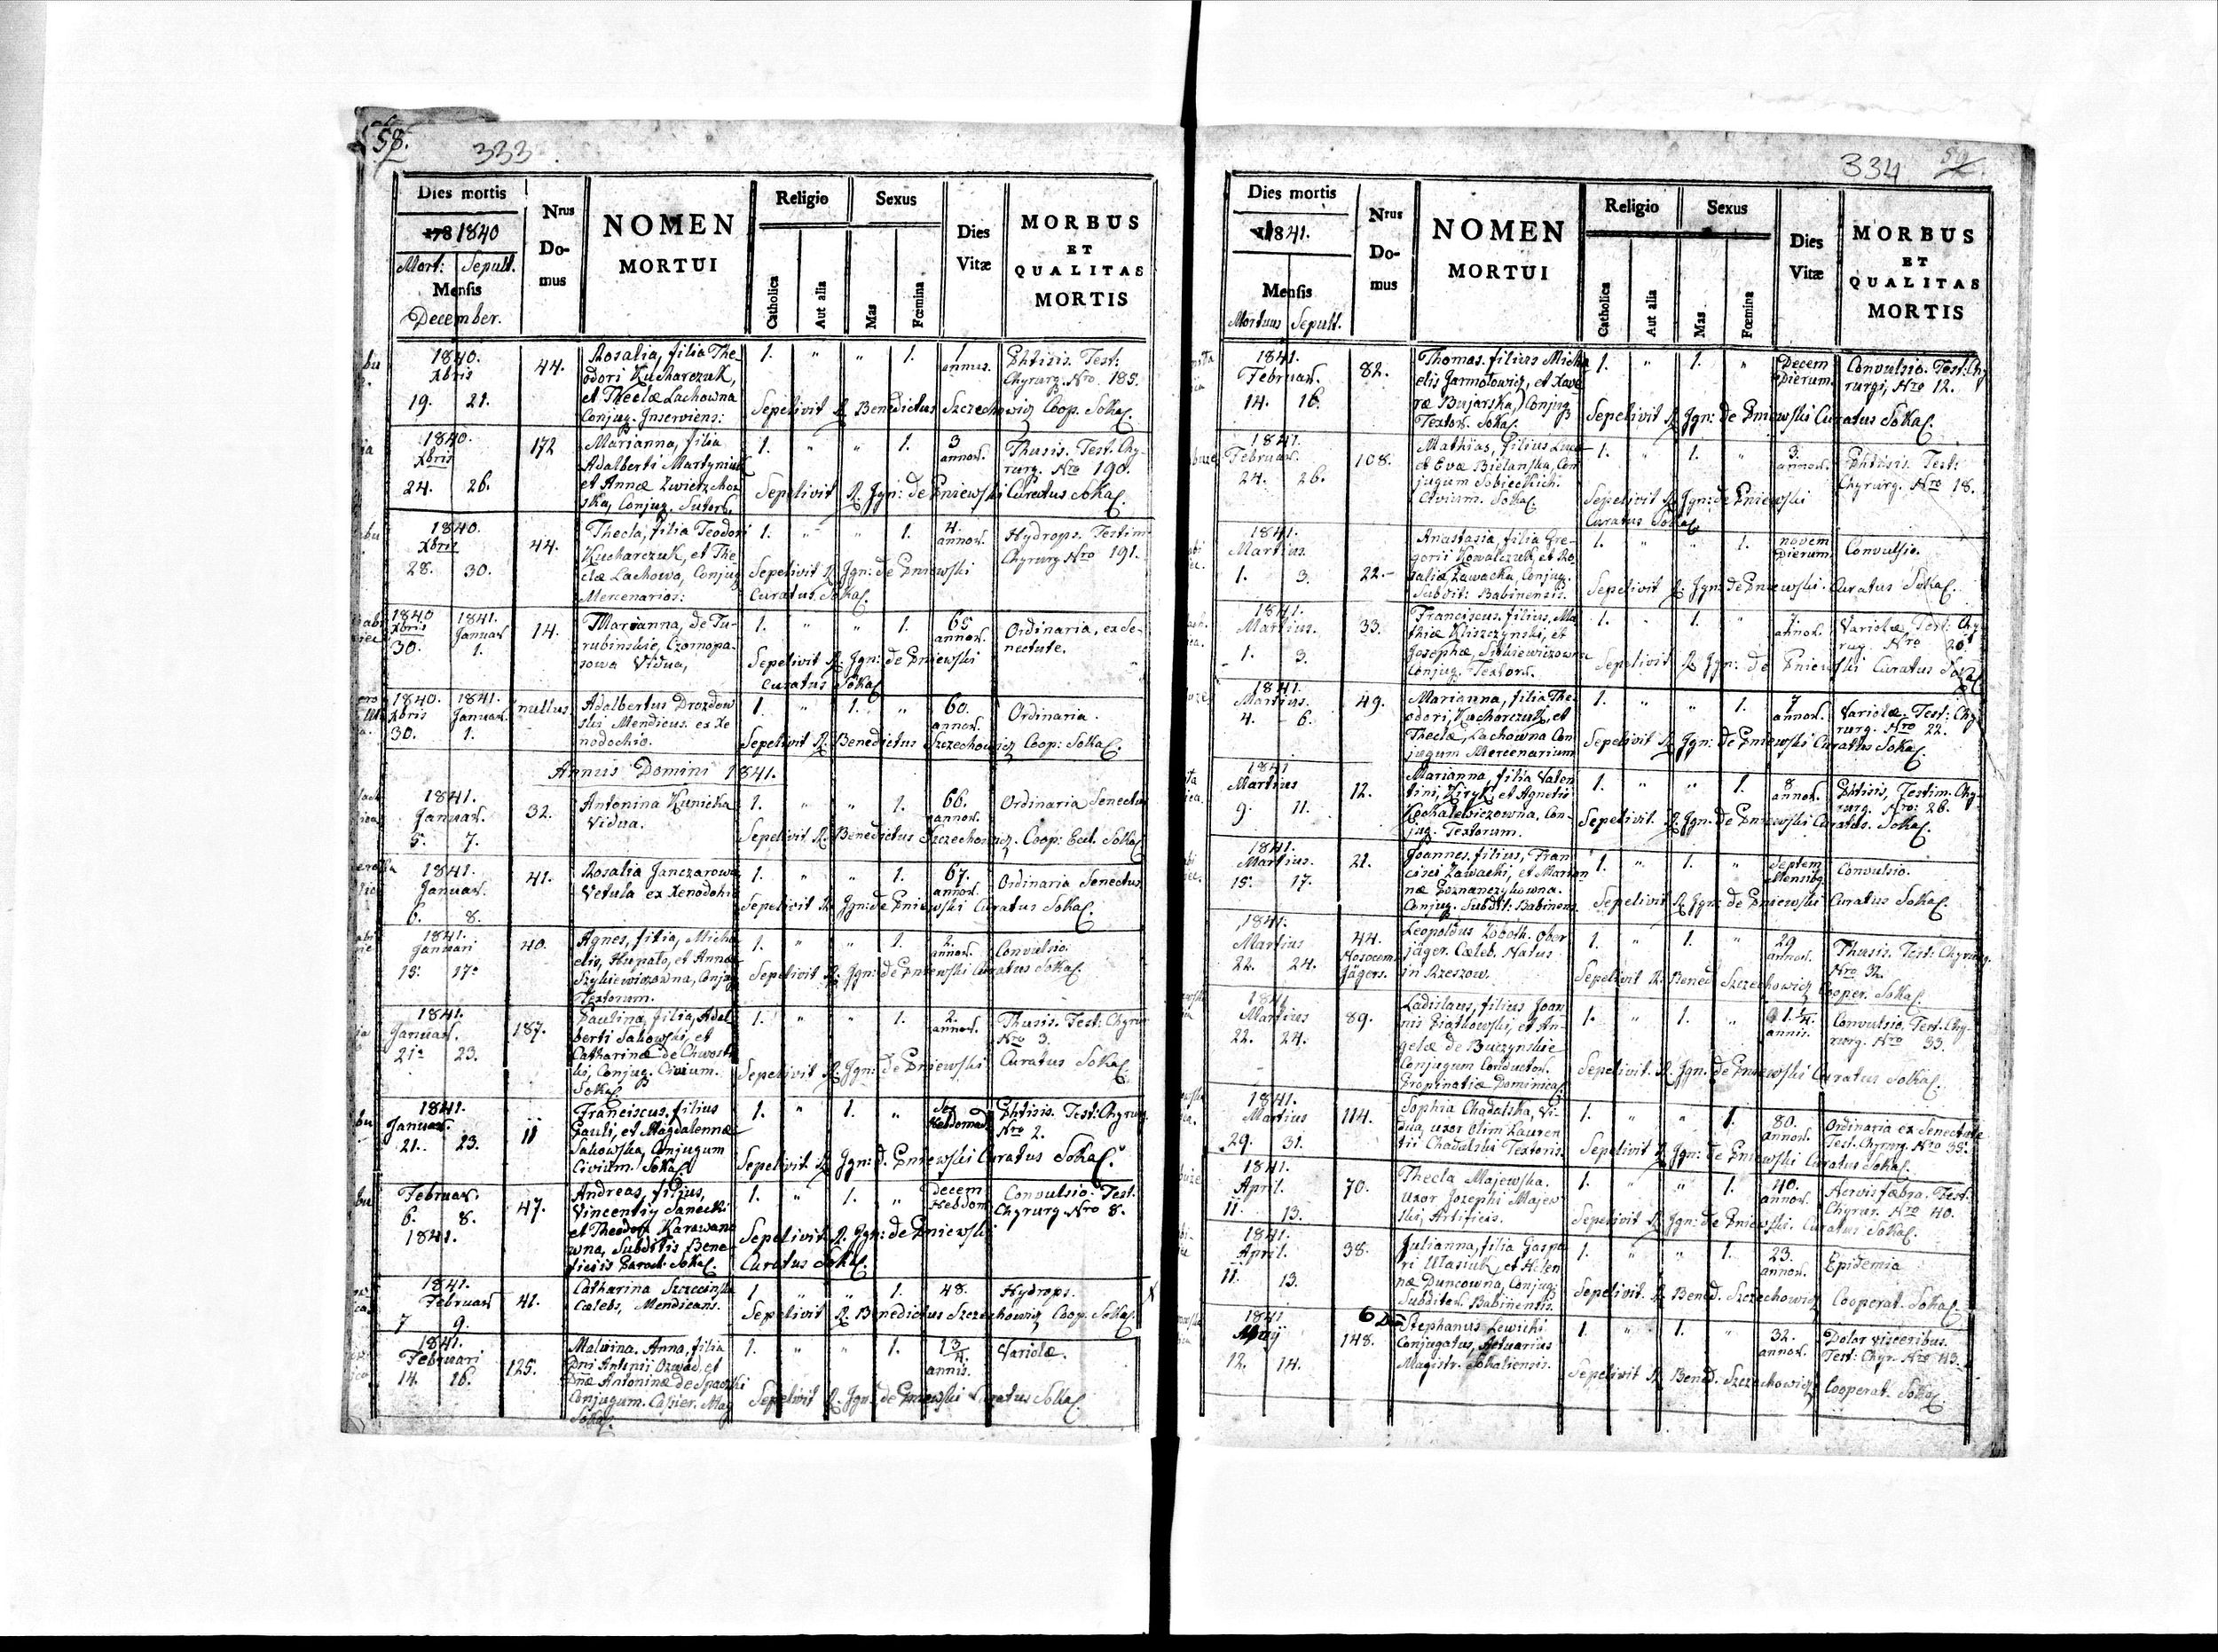 58.
333
Dies mortis
Nrus
Do-
mus
NOMEN
MORTUI
Religio
Sexus
Dies
Vitæ
MORBUS
ET
QUALITAS
MORTIS
178 1840
Mort: Sepult.
Mensis
December.
Catholica
Aut alia
Mas
Fœmina
1840.
Xbris
19. 21.
44.
Rosalia, filia The
odori Kucharczuk,
et Theclæ Lachowna
Conjug. Inserviens:
1. " " 1.
1
annus.
Phtisis. Test:
Chyrurg. Nro 185.
Sepelivit R. Benedictus Szczechowicz Coop. Sokal.
1840.
Xbris
24. 26.
172
Marianna, filia
Adalberti Martyniuk
et Annæ Zwierzchow
ska, Conjug. Sutor.
1. " " 1.
3
annor.
Thusis. Test. Chy-
rurg. Nro 190.
Sepelivit R. Ign: de Pniewski Curatus Sokal.
1840.
Xbris
28. 30.
44.
Thecla, filia Teodori
Kucharczuk, et The
clæ Lachowa, Conjug
Mercenarios:
1. " " 1.
4.
annor.
Hydrops. Testim
Chyrurg Nro 191.
Sepelivit R. Ign: de Pniewski
Curatus Sokal.
1840 1841.
Xbris Januar
30. 1.
14.
Marianna, de Tu-
rubinskie, Czornopa-
sowa Vidua,
1. " " 1.
65
annor.
Ordinaria, ex Se-
nectute.
Sepelivit R. Ign: de Pniewski
Curatus Sokal
1840. 1841.
Xbris Januar.
30. 1.
nullus
Adalbertus Drozdow
ski Mendicus. ex Xe
nodochio.
1. " 1. "
60.
annor.
Ordinaria.
Sepelivit R. Benedictus Szczechowicz Coop: Sokal.
Annus Domini 1841.
1841.
Januar.
5. 7.
32.
Antonina Kunicka
Vidua.
1. " " 1.
66.
annor.
Ordinaria Senectus
Sepelivit R. Benedictus Szczechowicz. Coop: Eccl. Sokal
1841.
Januar.
6. 8.
41.
Rosalia Janczarowa
Vetula ex Xenodohio
1. " " 1.
67.
annor.
Ordinaria Senectus
Sepelivit R. Ign: de Pniewski Curatus Sokal.
1841.
Januari
15. 17.
40.
Agnes, filia, Micha
elis, Hunato, et Annæ
Szykiewiczowna, Conjug
Textorum.
1. " " 1.
2.
annor.
Convulsio.
Sepelivit R. Ign: de Pniewski Curatus Sokal.
1841.
Januar.
21. 23.
187.
Paulina, filia, Adal
berti Sakowski, et
Catharinæ de Chwosti
ki, Conjug. Civium.
Sokal.
1. " " 1.
2.
annor.
Thusis. Test: Chyrur
Nro 3.
Sepelivit R. Ign: de Pniewski Curatus Sokal.
1841.
Januar.
21. 23.
11
Franciscus, filius
Pauli, et Magdalennæ
Sakowska, Conjugum
Civium. Sokal
1. " 1. "
Sex
Hebdomad
Phtisis. Test: Chyrurg
Nro 2.
Sepelivit R. Ign: d. Pniewski Curatus Sokal.
Februar.
6. 8.
1841.
47.
Andreas, filius,
Vincentiy Sanecki
et Theodora Karawano
wna, Subditis Bene
ficiis Paroch. Sokal.
1. " 1. "
Decem
Hebdom
Convulsio. Test.
Chyrurg. Nro 8.
Sepelivit R. Ign: de Pniewski
Curatus Sokal.
1841.
Februar
7 9.
41.
Catharina Szczecinska
Cælebs, Mendicans.
1 " " 1.
48.
Hydrops.
Sepelivit R. Benedictus Szczechowicz Coop. Sokal.
1841.
Februari
14. 16.
125.
Malwina. Anna, filia
Dni Antonii Ozwad, et
Dnæ Antoninæ de Spaczki
Conjugum. Casier. Mag
Sokal.
1. " " 1.
1 3/4.
annis.
Variolæ.
Sepelivit R. Ign. de Pniewski Curatus Sokal.
334
59
Dies mortis
Nrus
Do-
mus
NOMEN
MORTUI
Religio
Sexus
Dies
Vitæ
MORBUS
ET
QUALITAS
MORTIS
1841.
Mensis
Mortuus Sepult.
Catholica
Aut alia
Mas
Fœmina
1841.
Februar.
14. 16.
82.
Thomas, filius Micha
elis Jarmolowicz, et Xave
ræ Bujarska, Conjug
Textor. Sokal.
1. " 1. "
Decem
Dierum.
Convulsio. Test. Chy
rurgi, Nro 12.
Sepelivit R. Ign: de Pniewski Curatus Sokal.
1841.
Februar.
24. 26.
108.
Mathias, filius Lucæ
et Evæ Bielanska, Con
jugum Sobieckich.
Civium. Sokal.
1. " 1. "
3.
annor.
Phtisis. Test:
Chyrurg. Nro 18.
Sepelivit R. Ign: de Pniewski
Curatus Sokal
1841.
Martius.
1. 3.
22.-
Anastasia, filia Gre-
gorii Kowalczuk, et Ro
saliæ Zawacka, Conjug.
Subdit: Babinensis.
1. " " 1.
novem
Dierum
Convulsio.
Sepelivit R. Ign: de Pniewski. Curatus Sokal.
1841.
Martius.
1. 3.
33.
Franciscus, filius, Ma
thiæ Kliszczynski, et
Josephæ, Sitkiewiczowna
Conjug. Textor.
1. " 1. "
annor.
Variolæ, Test: Chy
rug. Nro 20.
Sepelivit R. Ign: de Pniewski Curatus Sokal
1841.
Martius.
4. 6.
49.
Marianna, filia The
odori, Kucharczuk, et
Theclæ, Lachowna Con
jugum Mercenarium
1. " " 1.
7
annor.
Variolæ. Test: Chy
rurg. Nro 22.
Sepelivit R. Ign: de Pniewski Curatus Sokal.
1841
Martius
9. 11.
12.
Marianna, filia Valen
tini, Ziryk, et Agnetis
Kpohalewiczowna, Con-
jug. Textorum.
1. " " 1.
8
annor.
Phtisis, Testim. Chy-
rurg. Nro: 26.
Sepelivit. R. Ign. de Pniewski Curatus. Sokal.
1841.
Martius.
15. 17.
21.
Joannes, filius, Fran
cisci Zawacki, et Marian
næ Poznanczykowna.
Conjug. Subdit: Babinens.
1. " 1. "
Septem
Mensium
Convulsio.
Sepelivit R. Ign: de Pniewski Curatus Sokal.
1841.
Martius
22. 24.
44.
Nosocom
Jägers.
Leopoldus Zoboth. Ober
jäger. Cæleb. Natus
in Rzeszow.
1. " 1. "
29
annor.
Thusis. Test: Chyrurg.
Nro 32.
Sepelivit R. Bened Szczechowicz Cooper. Sokal.
1841
Martius
22. 24.
89.
Ladislaus, filius Joan
nis Piatkowski, et An-
gelæ de Buczynskie
Conjugum Conductor.
Propinatiæ Dominical
1. " 1. "
1 1/4.
annis.
Convulsio. Test. Chy-
rurg. Nro 33.
Sepelivit. R. Ign. de Pniewski Curatus Sokal.
1841.
Martius
29. 31.
114.
Sophia Chadalska, Vi-
dua, uxor olim Lauren
tii Chadalski Textoris
1. " " 1.
80.
annor.
Ordinaria ex Senectute
Test. Chyrurg. Nro 35.
Sepelivit R. Ign: de Pniewski Curatus Sokal.
1841.
April.
11. 13.
70.
Thecla Majewska.
uxor Jozephi Majew
ski, Artificis.
1. " " 1.
40.
annor.
Nervis fæbra. Test.
Chyrur. Nro 40.
Sepelivit R. Ign: de Pniewski. Curatus Sokal.
1841.
April.
11. 13.
38.
Julianna, filia Gaspa
ri Wasiuk, et Helen
næ Duncowna, Conjug:
Subditor. Babinentis.
1. " " 1.
23.
annor.
Epidemia
Sepelivit. R Bened. Szczechowicz Cooperat. Sokal.
1841
Maij
12. 14.
148.
Stephanus Lewicki
Conjugatus, Actuarius
Magistr. Sokaliensis.
1. " 1. "
32.
annor.
Dolor visceribus.
Test: Chyr. Nro 43.
Sepelivit R Bened. Szczechowicz Cooperat. Sokal